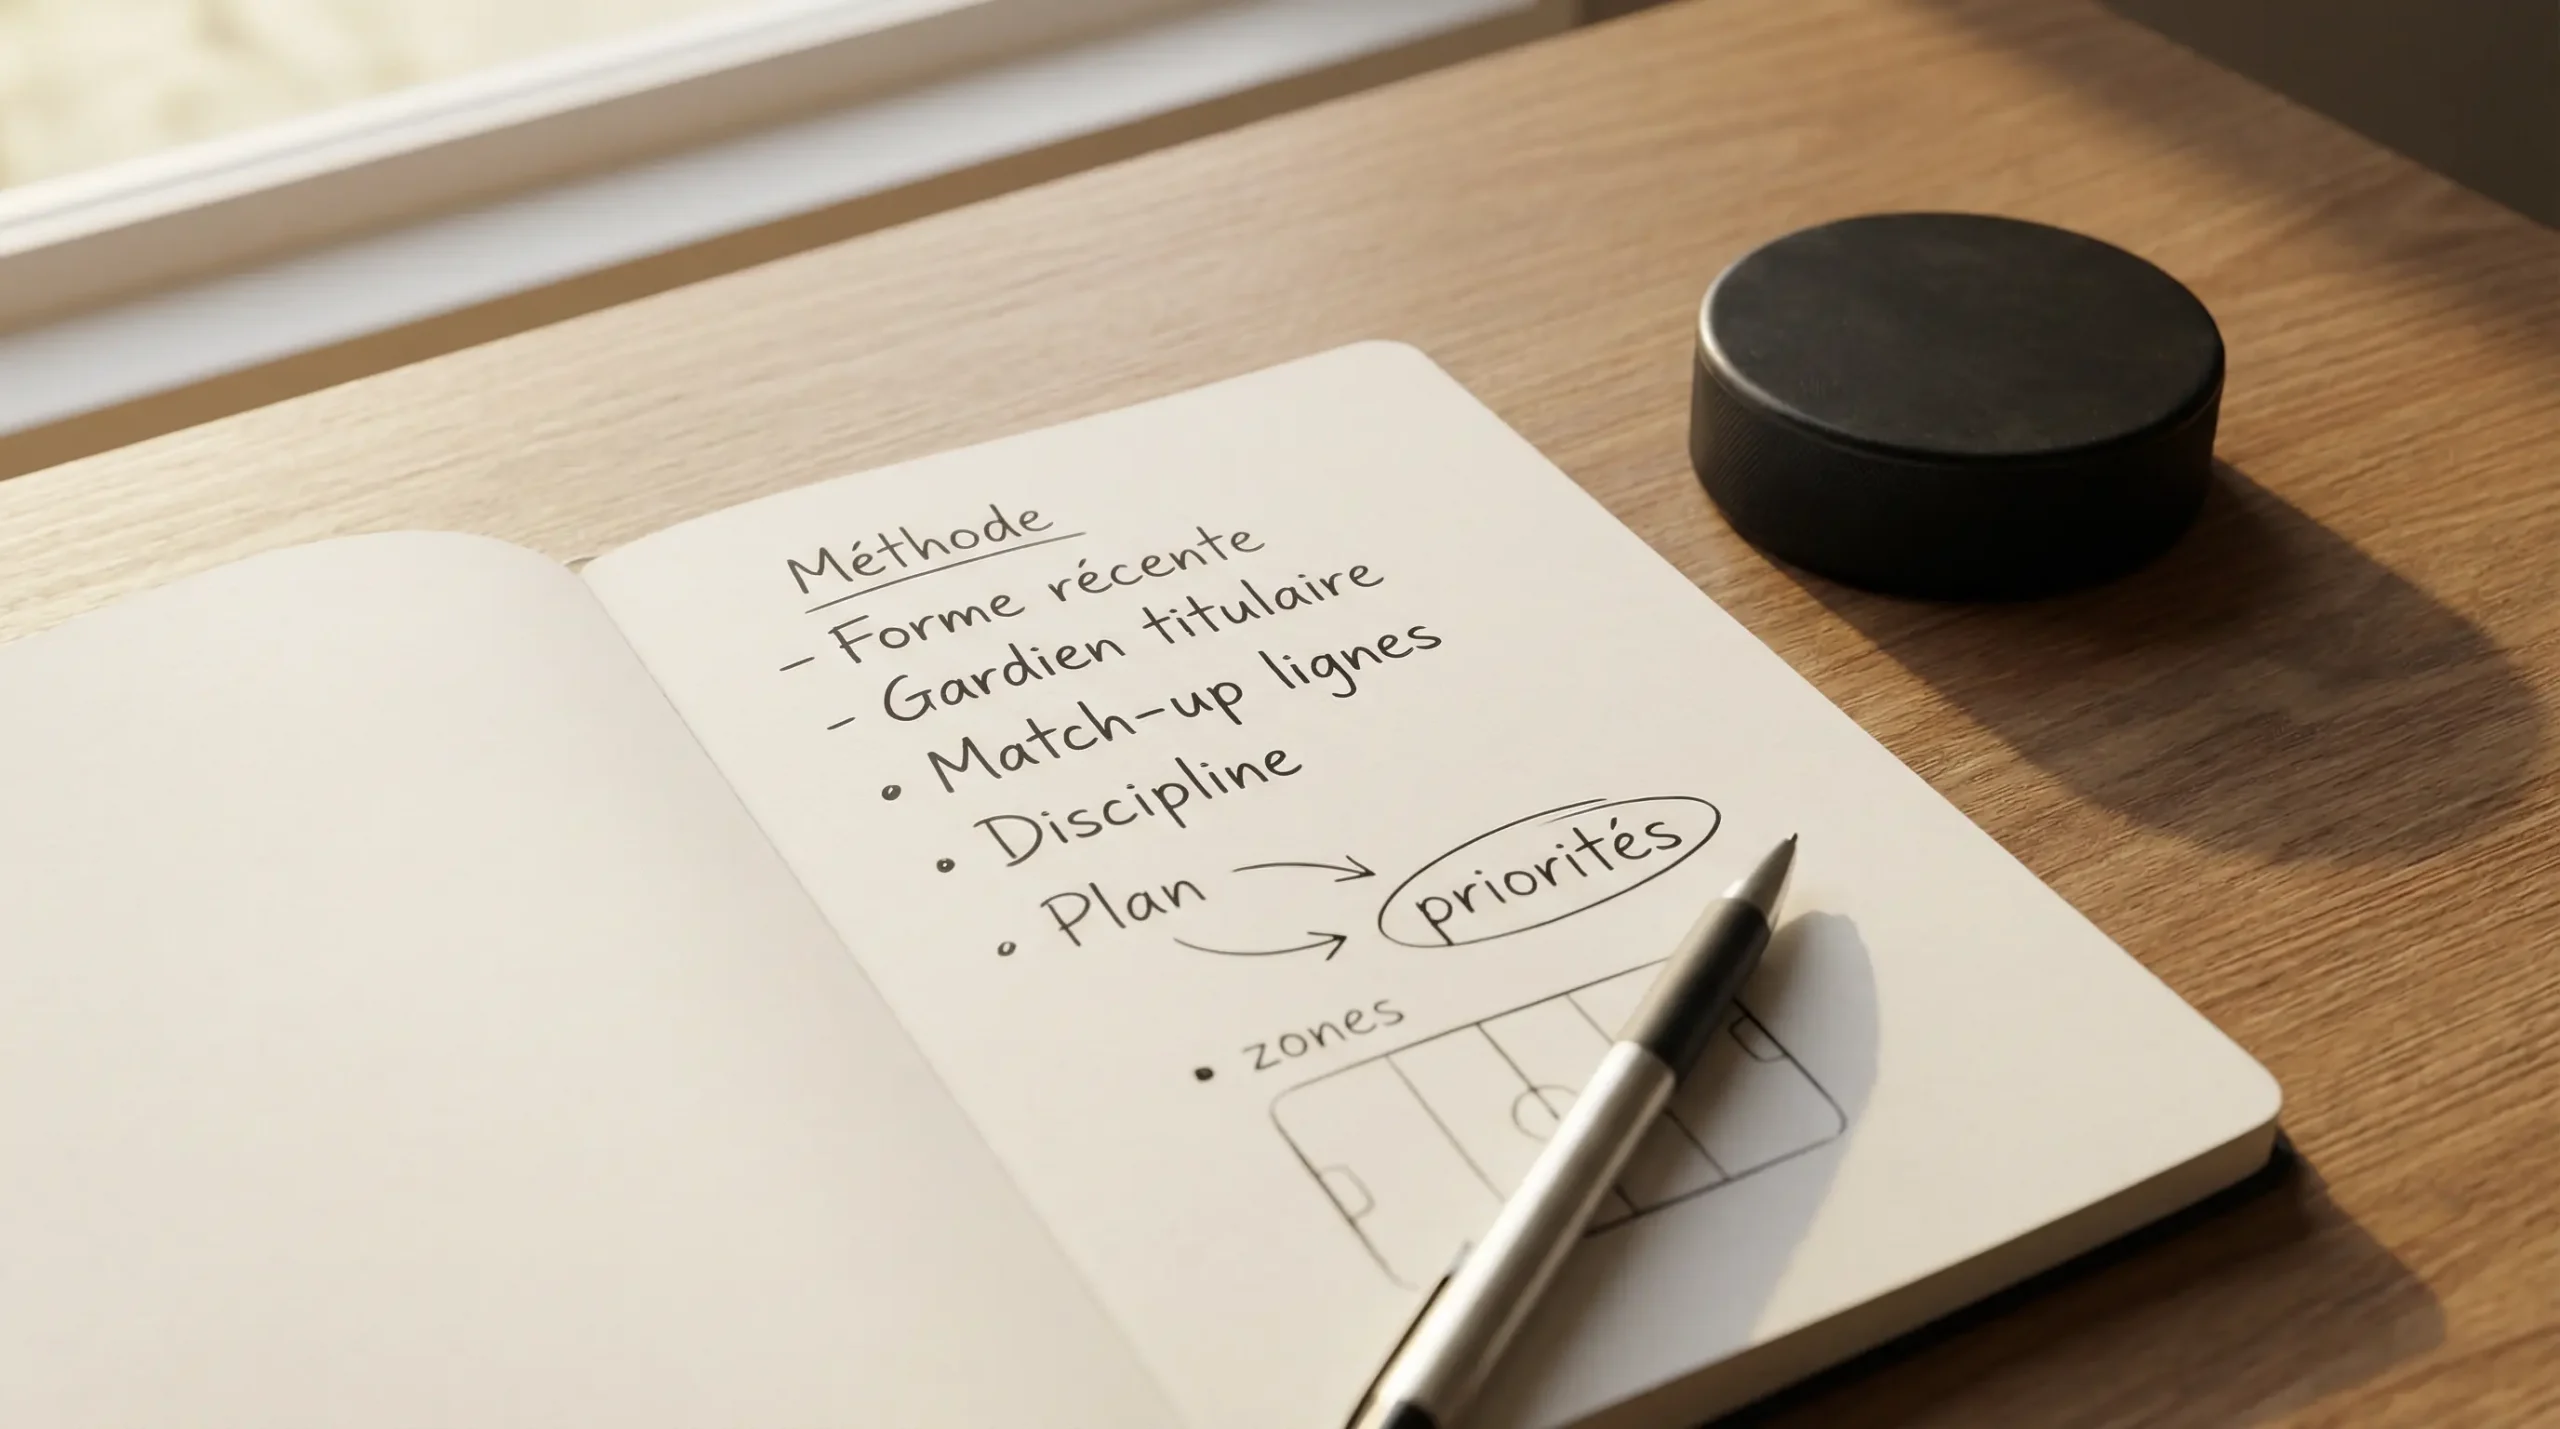 Méthode
- Forme récente
- Gardien titulaire
• Match-up lignes
• Discipline
• Plan → priorités
• zones